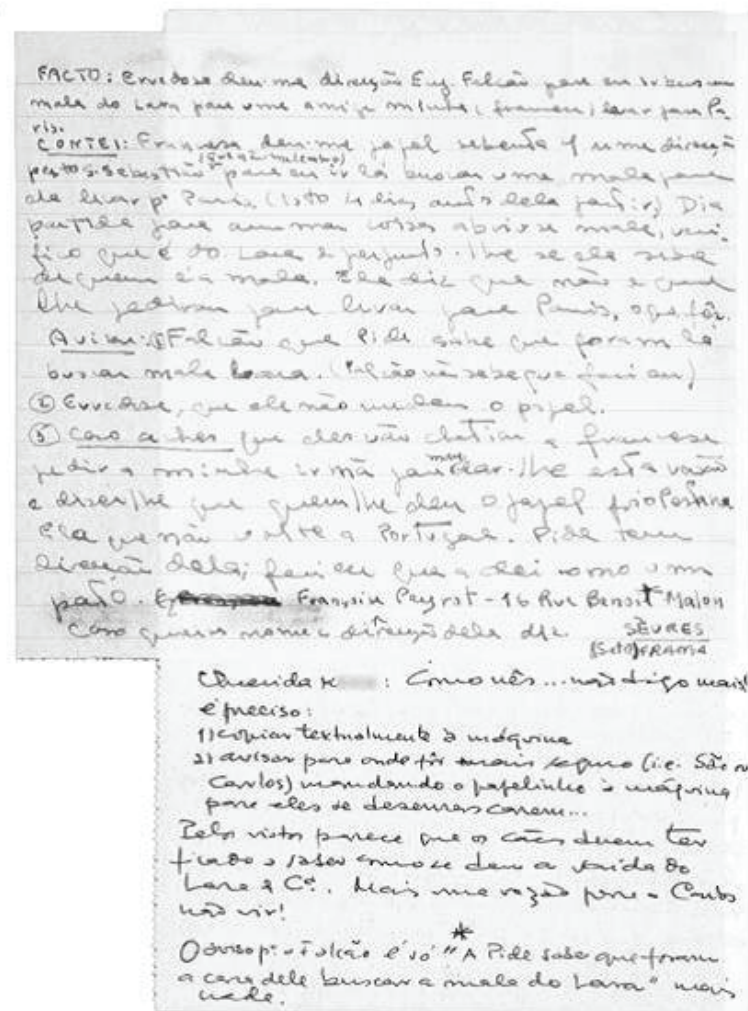 FACTO: Ervedosa deu-me direcção Eng. Falcão para eu ir buscar
mala do Lara para uma amiga minha (francesa) levar para Pa
ris.
CONTEI: Francesa deu-me papel sebento c/ uma direcção
perto S. Sebastião para eu ir lá buscar uma mala para
ela levar pª Paris (isto 4 dias antes dela partir) Dia
partida para arrumar coisas abriu-se mala, veri
fico que é do Lara e pergunto-lhe se ela sabe
de quem é a mala. Ela diz que não e que
lhe pediram para levar para Paris, o que fez.
Avisar: ① Falcão que Pide sabe que foram lá
buscar mala Lara. (Falcão não sabe que fui eu)
② Ervedosa, que ele não me deu o papel.
③ Caso aches que eles vão chatear a francesa
pedir a minha irmã para
e dizer/lhe que quem/lhe deu o papel foi
ela que não volte a Portugal. Pide tem
direcção dela; fui eu que a dei como um
pato. Francine Peyrot - 16 Rue Benoit Malon
Caso queiras nome e direcção dela diz. SÈVRES
(S.etO) FRANÇA
Querida : Como vês... não digo mais!
é preciso:
1) copiar textualmente à máquina
2) avisar para onde fôr mais seguro (i.e. São
Carlos) mandando o papelinho à máquina
para eles se desenrascarem...
Pelos vistos parece que os cães devem ter
ficado a saber como se deu a saída do
Lara & Cª. Mais uma razão para o Carlos
não vir!
*
O aviso pª o Falcão é só "A Pide sabe que foram
a casa dele buscar a mala do Lara" mais
nada.